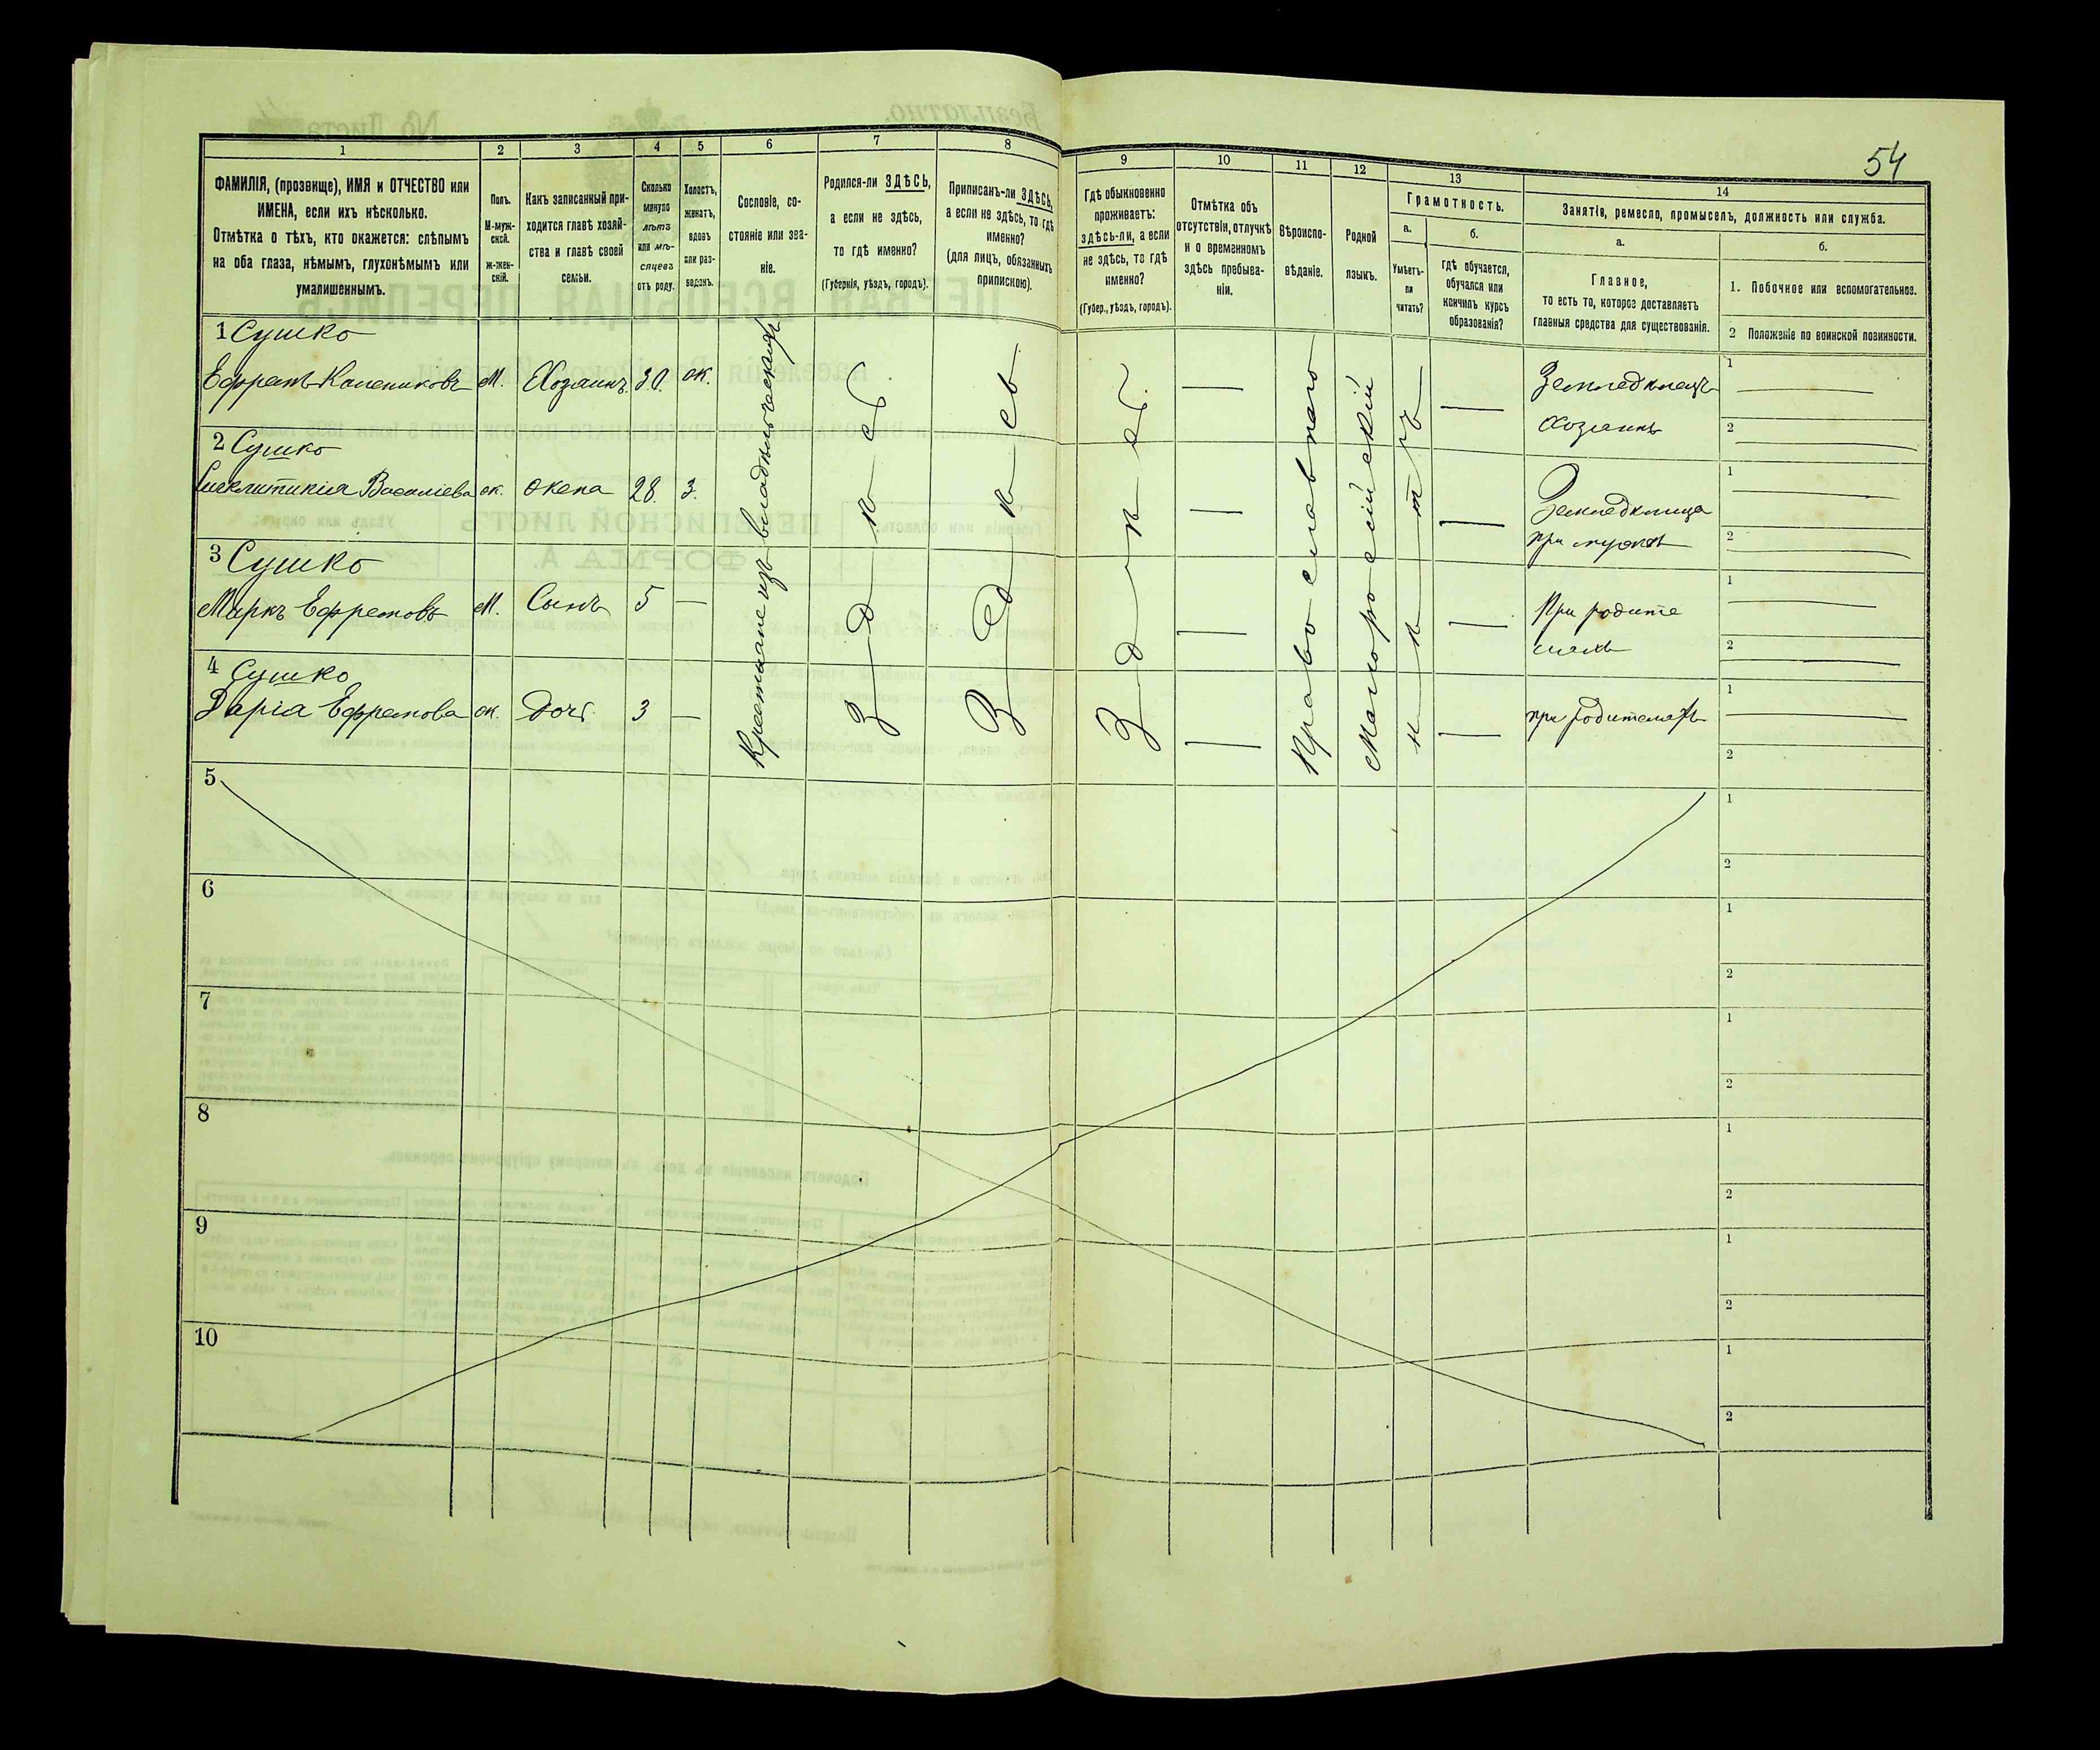 54
1 2 3 4 5 6 7 8 9 10 11 12 13 14
ФАМИЛІЯ, (прозвище), ИМЯ и ОТЧЕСТВО или
ИМЕНА, если ихъ нѣсколько.
Отмѣтка о тѣхъ, кто окажется: слѣпымъ
на оба глаза, нѣмымъ, глухонѣмымъ или
умалишеннымъ.
Полъ.
М-муж-
ской.
ж-жен-
скій.
Какъ записанный при-
ходится главѣ хозяй-
ства и главѣ своей
семьи.
Сколько
минуло
лѣтъ
или мѣ-
сяцевъ
отъ роду.
Холостъ,
женатъ,
вдовъ
или раз-
веденъ.
Сословіе, со-
стояніе или зва-
ніе.
Родился-ли ЗДѢСЬ,
а если не здѣсь,
то гдѣ именно?
(Губернія, уѣздъ, городъ).
Приписанъ-ли ЗДѢСЬ,
а если не здѣсь, то гдѣ
именно?
(для лицъ, обязанныхъ
припискою).
Гдѣ обыкновенно
проживаетъ:
здѣсь-ли, а если
не здѣсь, то гдѣ
именно?
(Губер., уѣздъ, городъ).
Отмѣтка объ
отсутствіи, отлучкѣ
и о временномъ
здѣсь пребыва-
ніи.
Вѣроиспо-
вѣданіе.
Родной
языкъ.
Грамотность.
а.
Умѣетъ-
ли
читать?
б.
гдѣ обучается,
обучался или
кончилъ курсъ
образованія?
Занятіе, ремесло, промыселъ, должность или служба.
а.
Главное,
то есть то, которое доставляетъ
главныя средства для существованія.
б.
1. Побочное или вспомогательное.
2 Положеніе по воинской повинности.
1 Сушко
Ефремъ Калениковъ М. Хозяинъ 30. ж.
Земледѣлецъ
хозяинъ
1
2
2 Сушко
Синклитикія Василіева ж. жена 28. З.
Земледѣлица
при мужѣ
1
2
3 Сушко
Маркъ Ефремовъ М. Сынъ 5 —
При родите
ляхъ
1
2
4 Сушко
Дарія Ефремова ж. дочь 3 —
при родителяхъ
1
2
Крестьяне изъ владѣльческихъ
Здѣсь
Здѣсь
Здѣсь
Православного
Малоросійскій
нѣтъ
5
1
2
6
1
2
7
1
2
8
1
2
9
1
2
10
1
2